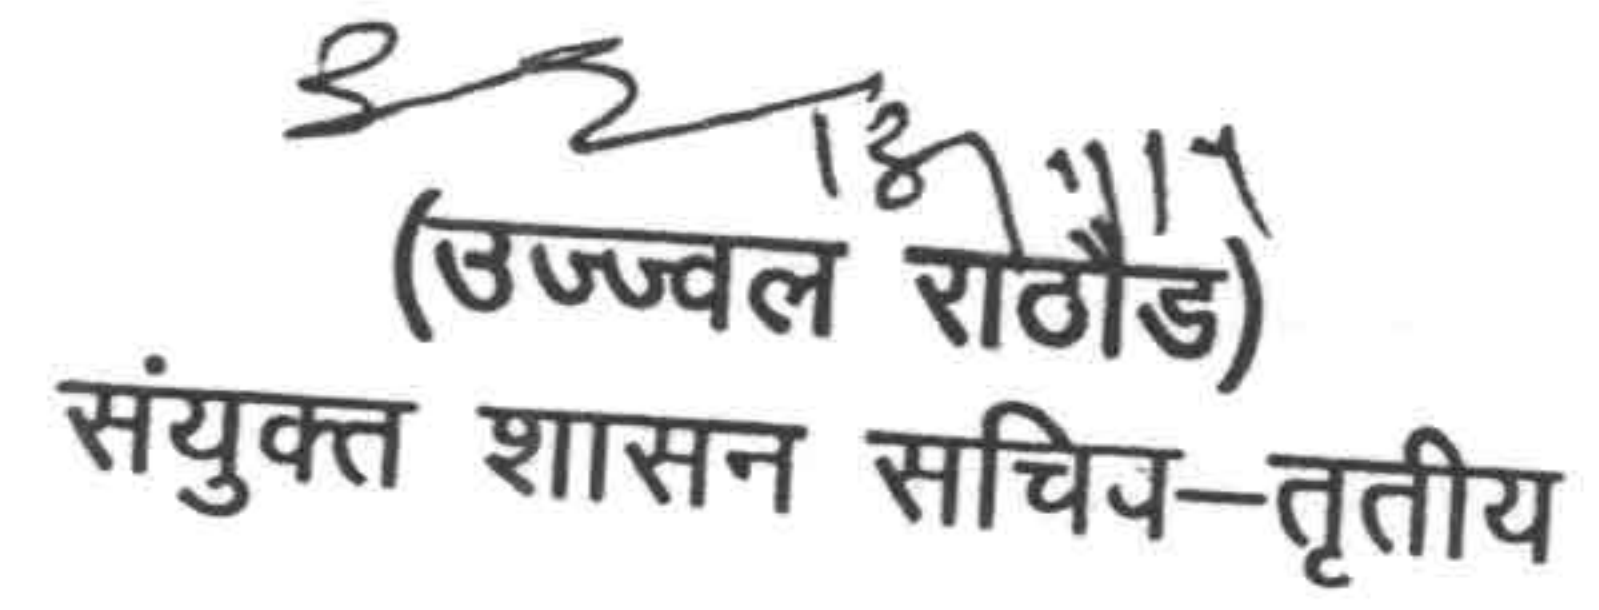 (उज्ज्वल राठौड)
संयुक्त शासन सचिव–तृतीय